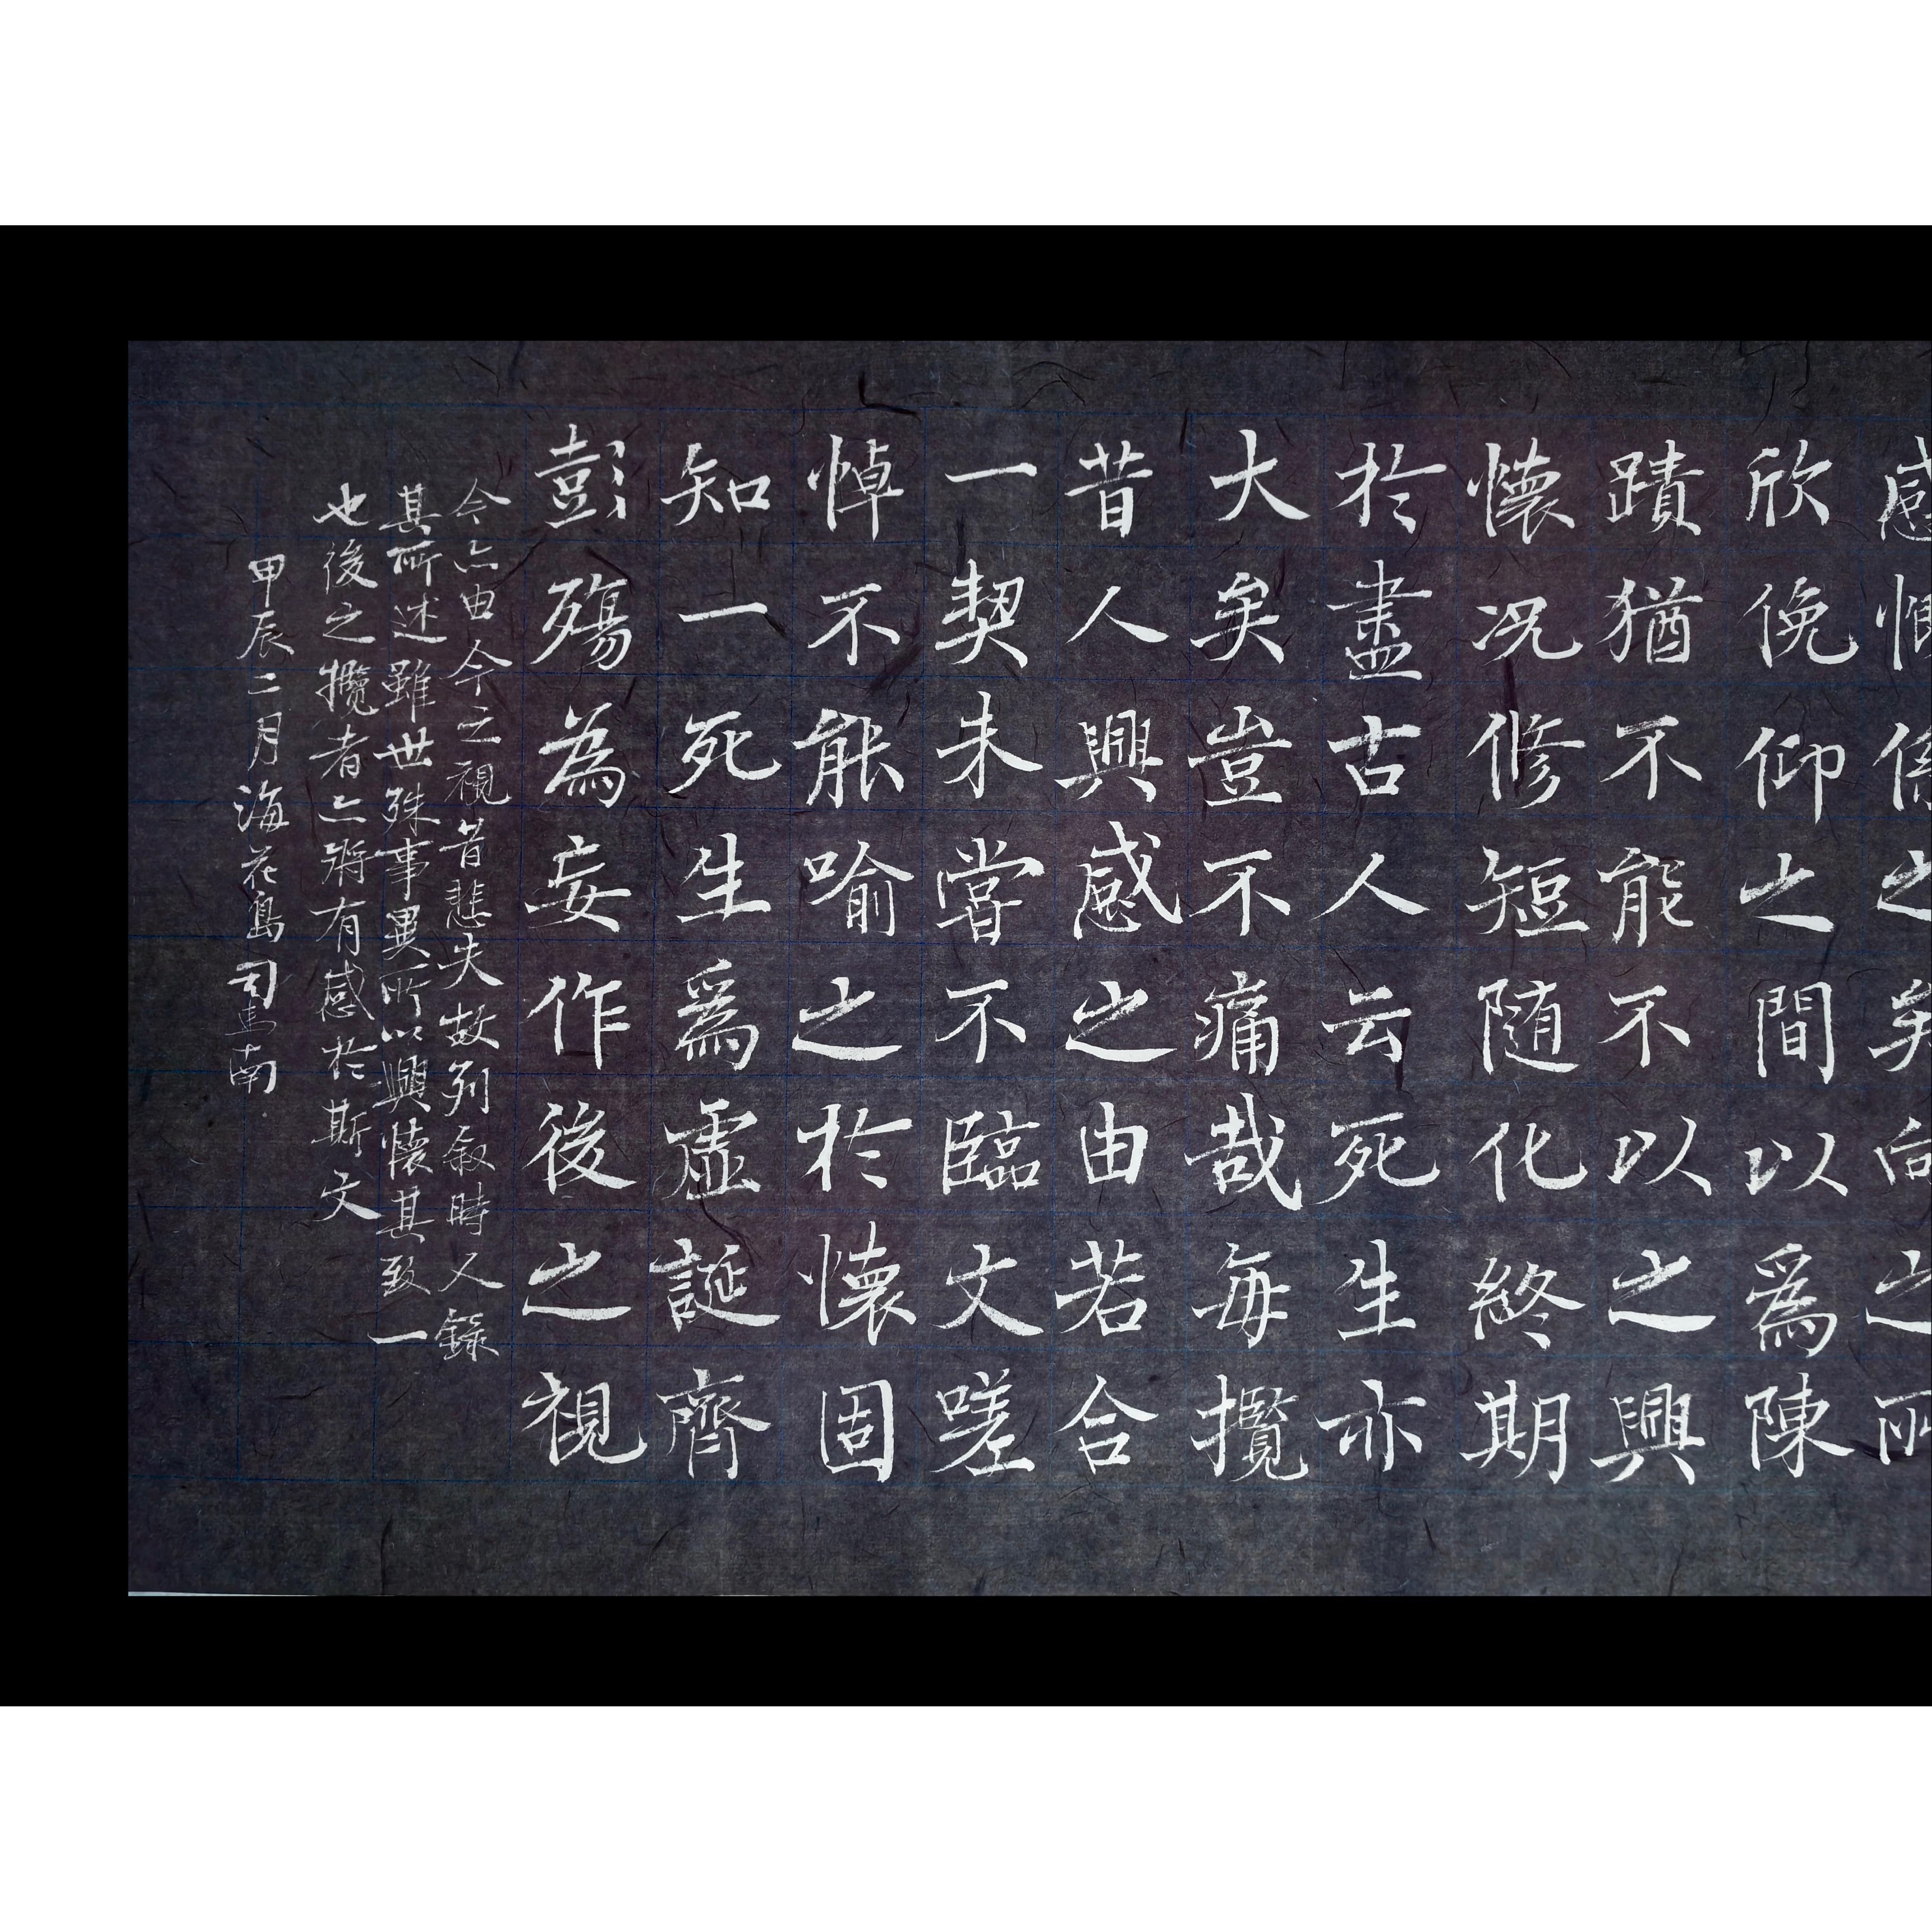 感慨係之矣向之所
欣俛仰之間以爲陳
蹟猶不能不以之興
懷况修短随化終期
於盡古人云死生亦
大矣豈不痛哉每攬
昔人興感之由若合
一契未嘗不臨文嗟
悼不能喻之於懷固
知一死生爲虛誕齊
彭殤為妄作後之視
今亦由今之視昔悲夫故列叙時人錄
其所述雖世殊事異所以興懷其致一
也後之攬者亦將有感於斯文
甲辰二月海花島司馬南